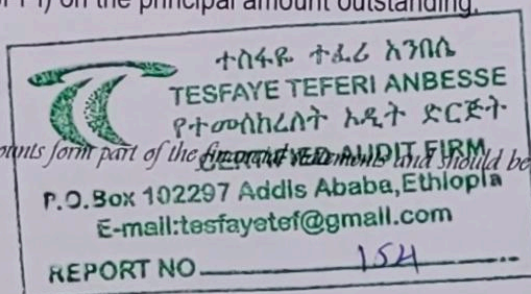 on the principal amount outstanding.
ተስፋዬ ተፈሪ አንበሴ
TESFAYE TEFERI ANBESSE
የተመሰከረለት ኦዲት ድርጅት
CERTIFYED AUDIT FIRM
form part of the financial statements and should be
P.O.Box 102297 Addis Ababa,Ethiopia
E-mail:tesfayetef@gmail.com
REPORT NO 154